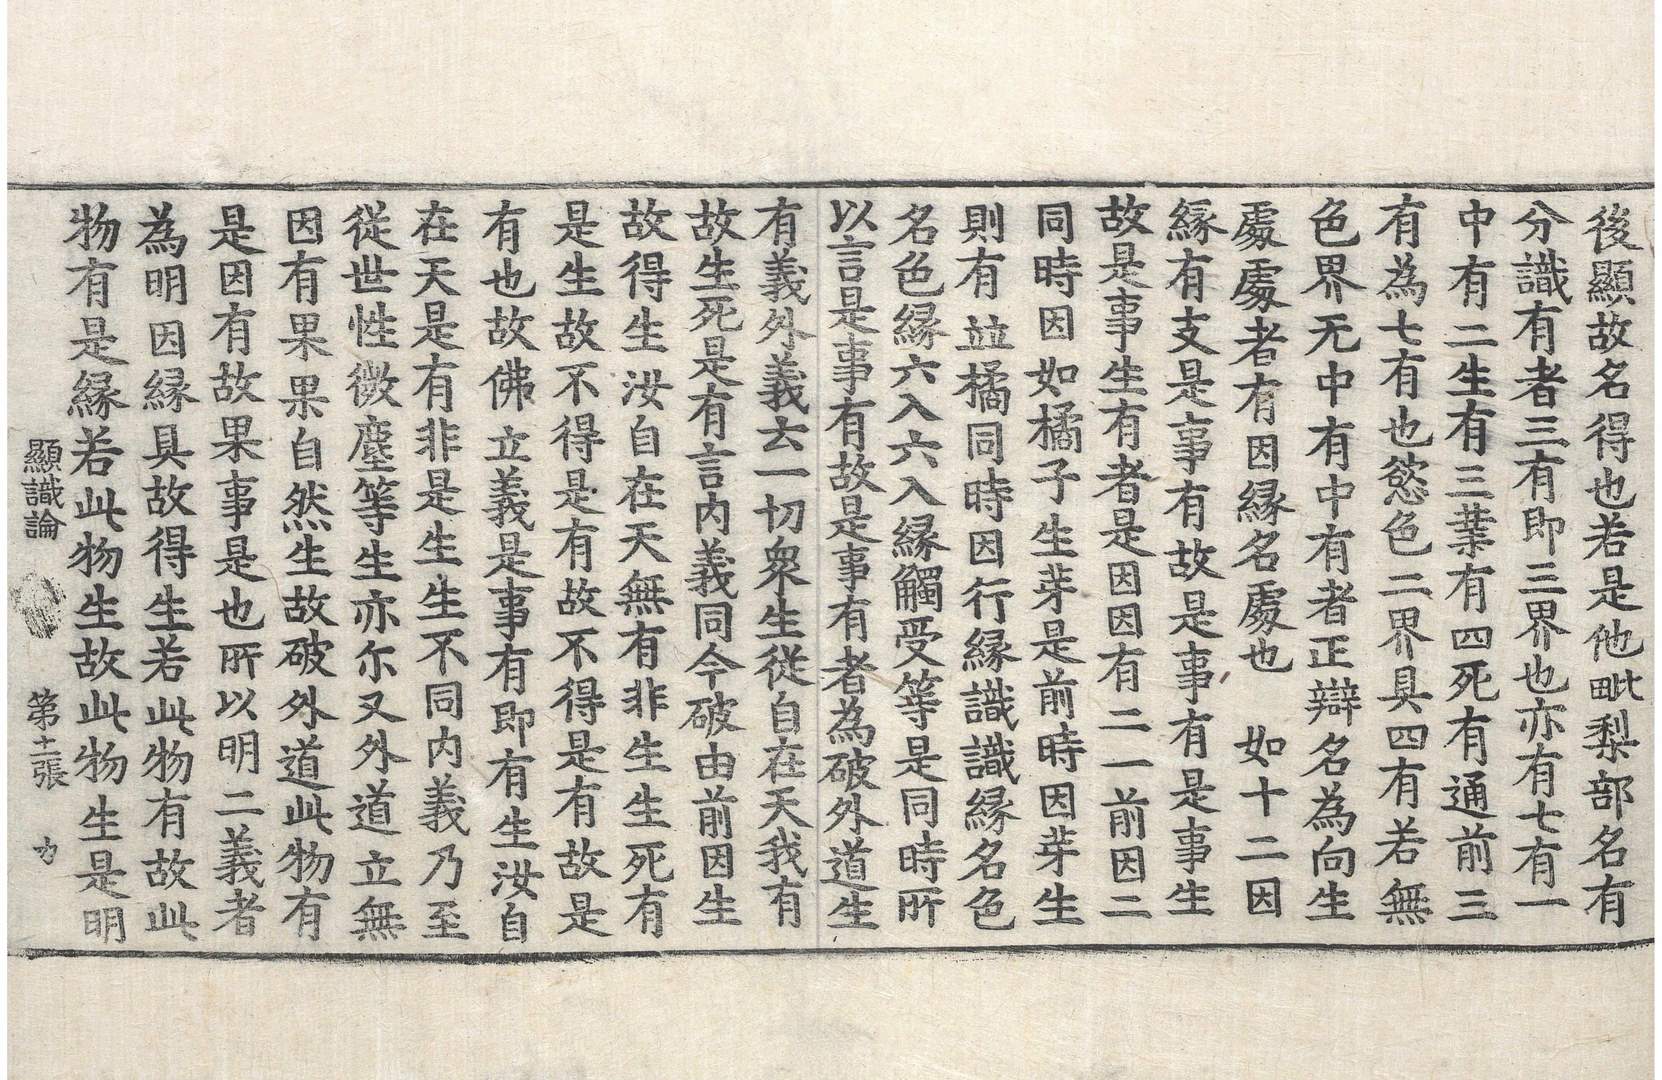 後顯故名得也若是他毗梨部名有
分識有者三有即三界也亦有七有一
中有二生有三業有四死有通前三
有為七有也慾色二界具四有若無
色界无中有中有者正辯名為向生
處處者有因緣名處也　如十二因
緣有支是事有故是事有是事生
故是事生有者是因因有二一前因二
同時因如橘子生芽是前時因芽生
則有並橘同時因行緣識識緣名色
名色緣六入六入緣觸受等是同時所
以言是事有故是事有者為破外道生
有義外義云一切眾生從自在天我有
故生死是有言內義同今破由前因生
故得生汝自在天無有非生生死有
是生故不得是有故不得是有故是
有也故佛立義是事有即有生汝自
在天是有非是生生不同內義乃至
從世性微塵等生亦尔又外道立無
因有果果自然生故破外道此物有
是因有故果事是也所以明二義者
為明因緣具故得生若此物有故此
物有是緣若此物生故此物生是明
顯識論　第十一張　力